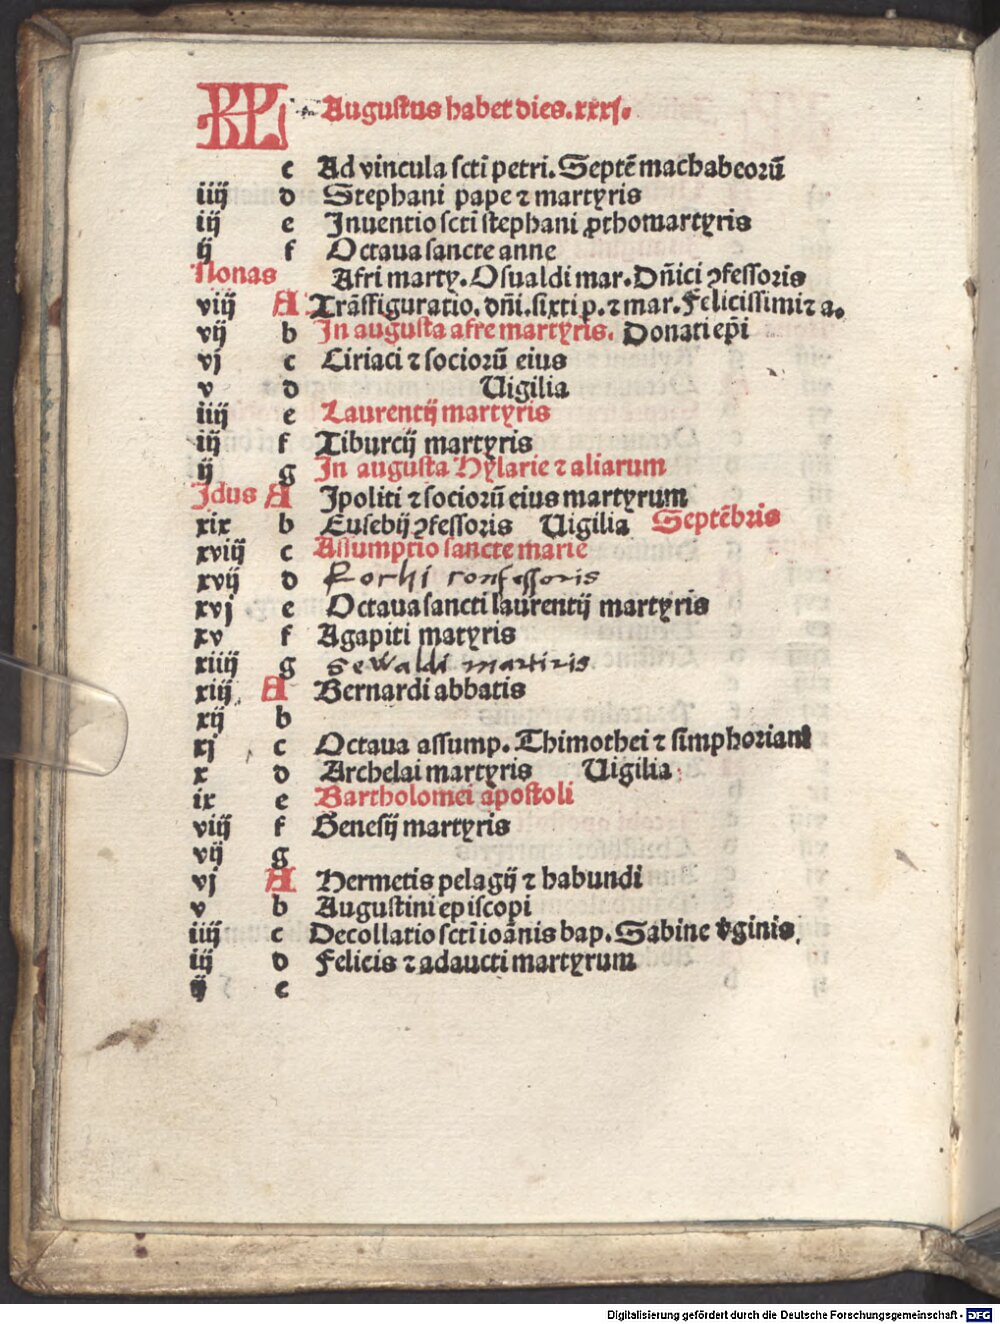 KL Augustus habet dies.xxxj.
c Ad vincula scti petri. Septē machabeorū
iiij d Stephani pape ⁊ martyris
iij e Inuentio scti stephani ꝓthomartyris
ij f Octaua sancte anne
Nonas Afri marty. Osualdi mar. Dñici ꝯfessoris
viij A Trāsfiguratio. dñi. sixti p. ⁊ mar. Felicissimi ⁊ a.
vij b In augusta afre martyris. Donati ep̄i
vj c Ciriaci ⁊ sociorū eius
v d Uigilia
iiij e Laurentij martyris
iij f Tiburcij martyris
ij g In augusta Hylarie ⁊ aliarum
Idus A Ipoliti ⁊ sociorū eius martyrum
xix b Eusebij ꝯfessoris Uigilia Septēbris
xviij c Assumptio sancte marie
xvij d Rochi confessoris
xvj e Octaua sancti laurentij martyris
xv f Agapiti matyris
xiiij g Sewaldi martiris
xiij A Bernardi abbatis
xij b
xj c Octaua assump. Thimothei ⁊ simphoriani
x d Archelai martyris Uigilia
ix e Bartholomei apostoli
viij f Genesij martyris
vij g
vj A Hermetis pelagij ⁊ habundi
v b Augustini episcopi
iiij c Decollatio scti ioānis bap. Sabine v̄ginis.
iij d Felicis ⁊ adaucti martyrum
ij e
Digitalisierung gefördert durch die Deutsche Forschungsgemeinschaft - DFG